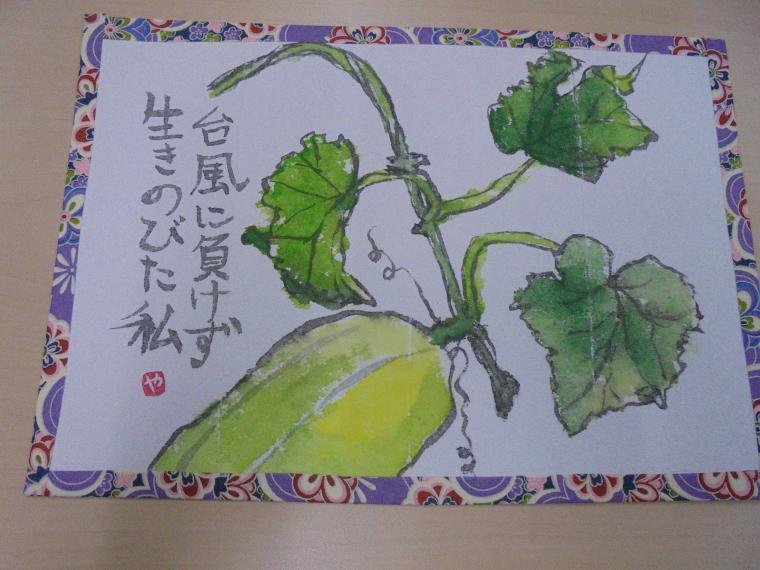 台風に負けず
生きのびた私
や